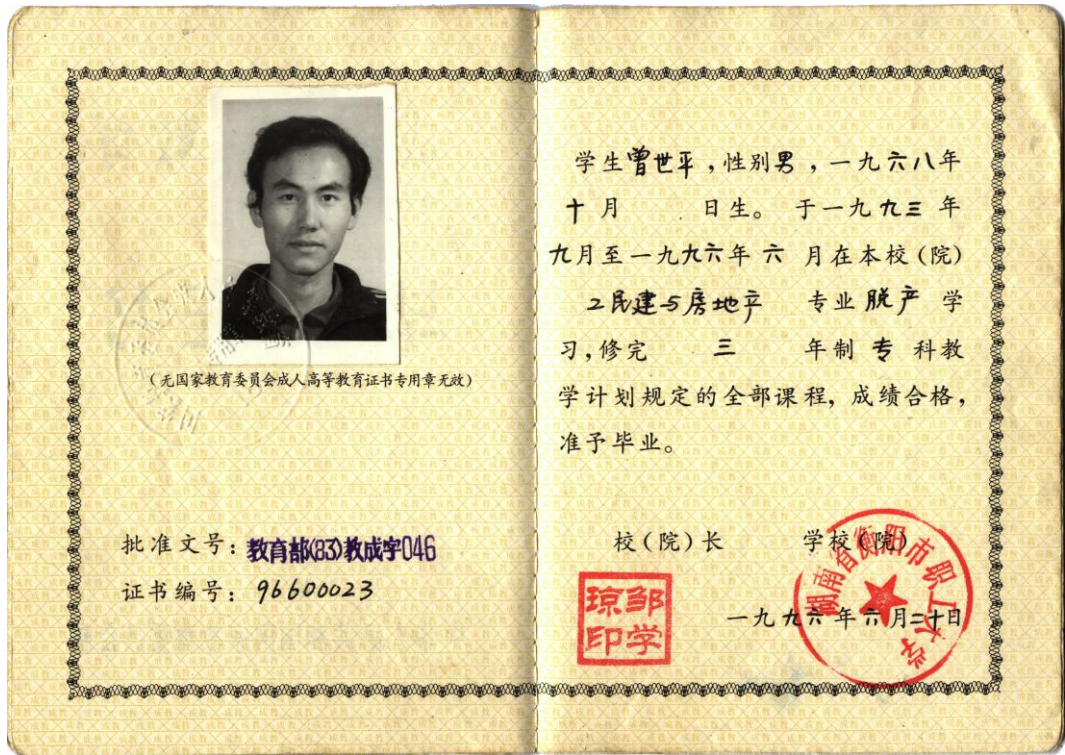 (无国家教育委员会成人高等教育证书专用章无效)
批准文号：教育部(83)教成字046
证书编号：96600023
学生曾世平，性别男，一九六八年
十月 日生。于一九九三年
九月至一九九六年六月在本校(院)
工民建与房地产 专业脱产学
习，修完 三 年制专科教
学计划规定的全部课程，成绩合格，
准予毕业。
校(院)长 学校(院)
邹学琼印
湖南省衡阳市职工大学
一九九六年六月二十日